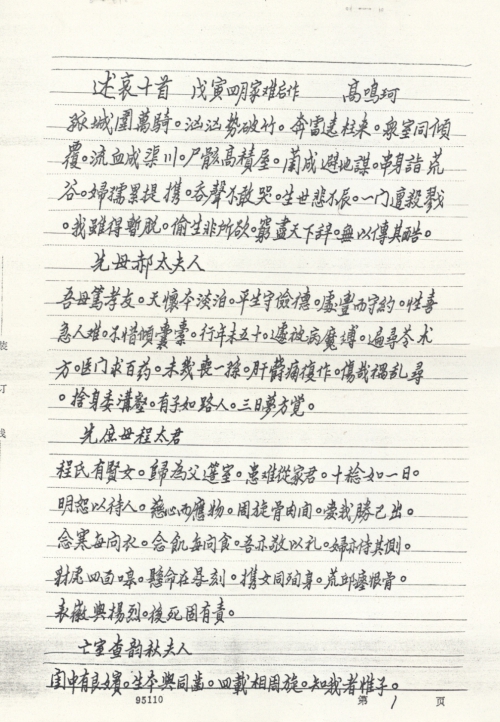 述哀十首 戊寅四月家难后作 高鸣珂
孤城围萬騎。汹汹势破竹。奔雷遶柱来。泉室同倾
覆。流血成渠川。尸骸高積屋。閤成避地謀。串身詣荒
谷。婦孺累提携。吞聲不敢哭。生世悲不辰。一门遭殺戮
。我雖得暫脱。偷生非所欲。窮盡天下辞。無以傳其酷。
先母郝太夫人
吾母篤孝友。天懷本淡泊。平生守儉德。處豐而守約。性喜
急人难。不惜傾囊橐。行年未五十。遽被病魔縛。遍尋苓术
方。医门求百药。未幾喪一孫。肝鬱痛復作。傷哉禍乱尋
。捨身委溝壑。有子如路人。三日夢方覚。
先庶母程太君
程氏有賢女。歸為父簉室。患难從家君。十稔如一日。
明恕以待人。慈心而應物。周旋骨肉间。爱我勝己出。
念寒每向衣。念飢每向食。吾亦敬以礼。婦亦侍其側。
豺虎四面嗥。懸命在晷刻。携女同殉身。荒邱瘞恨骨。
表徽與揚烈。後死固有責。
亡室查韵秋夫人
闺中有良嬪。生本與同嵗。四载相周旋。知我者惟子。
95110 第 1 页
装
订
线